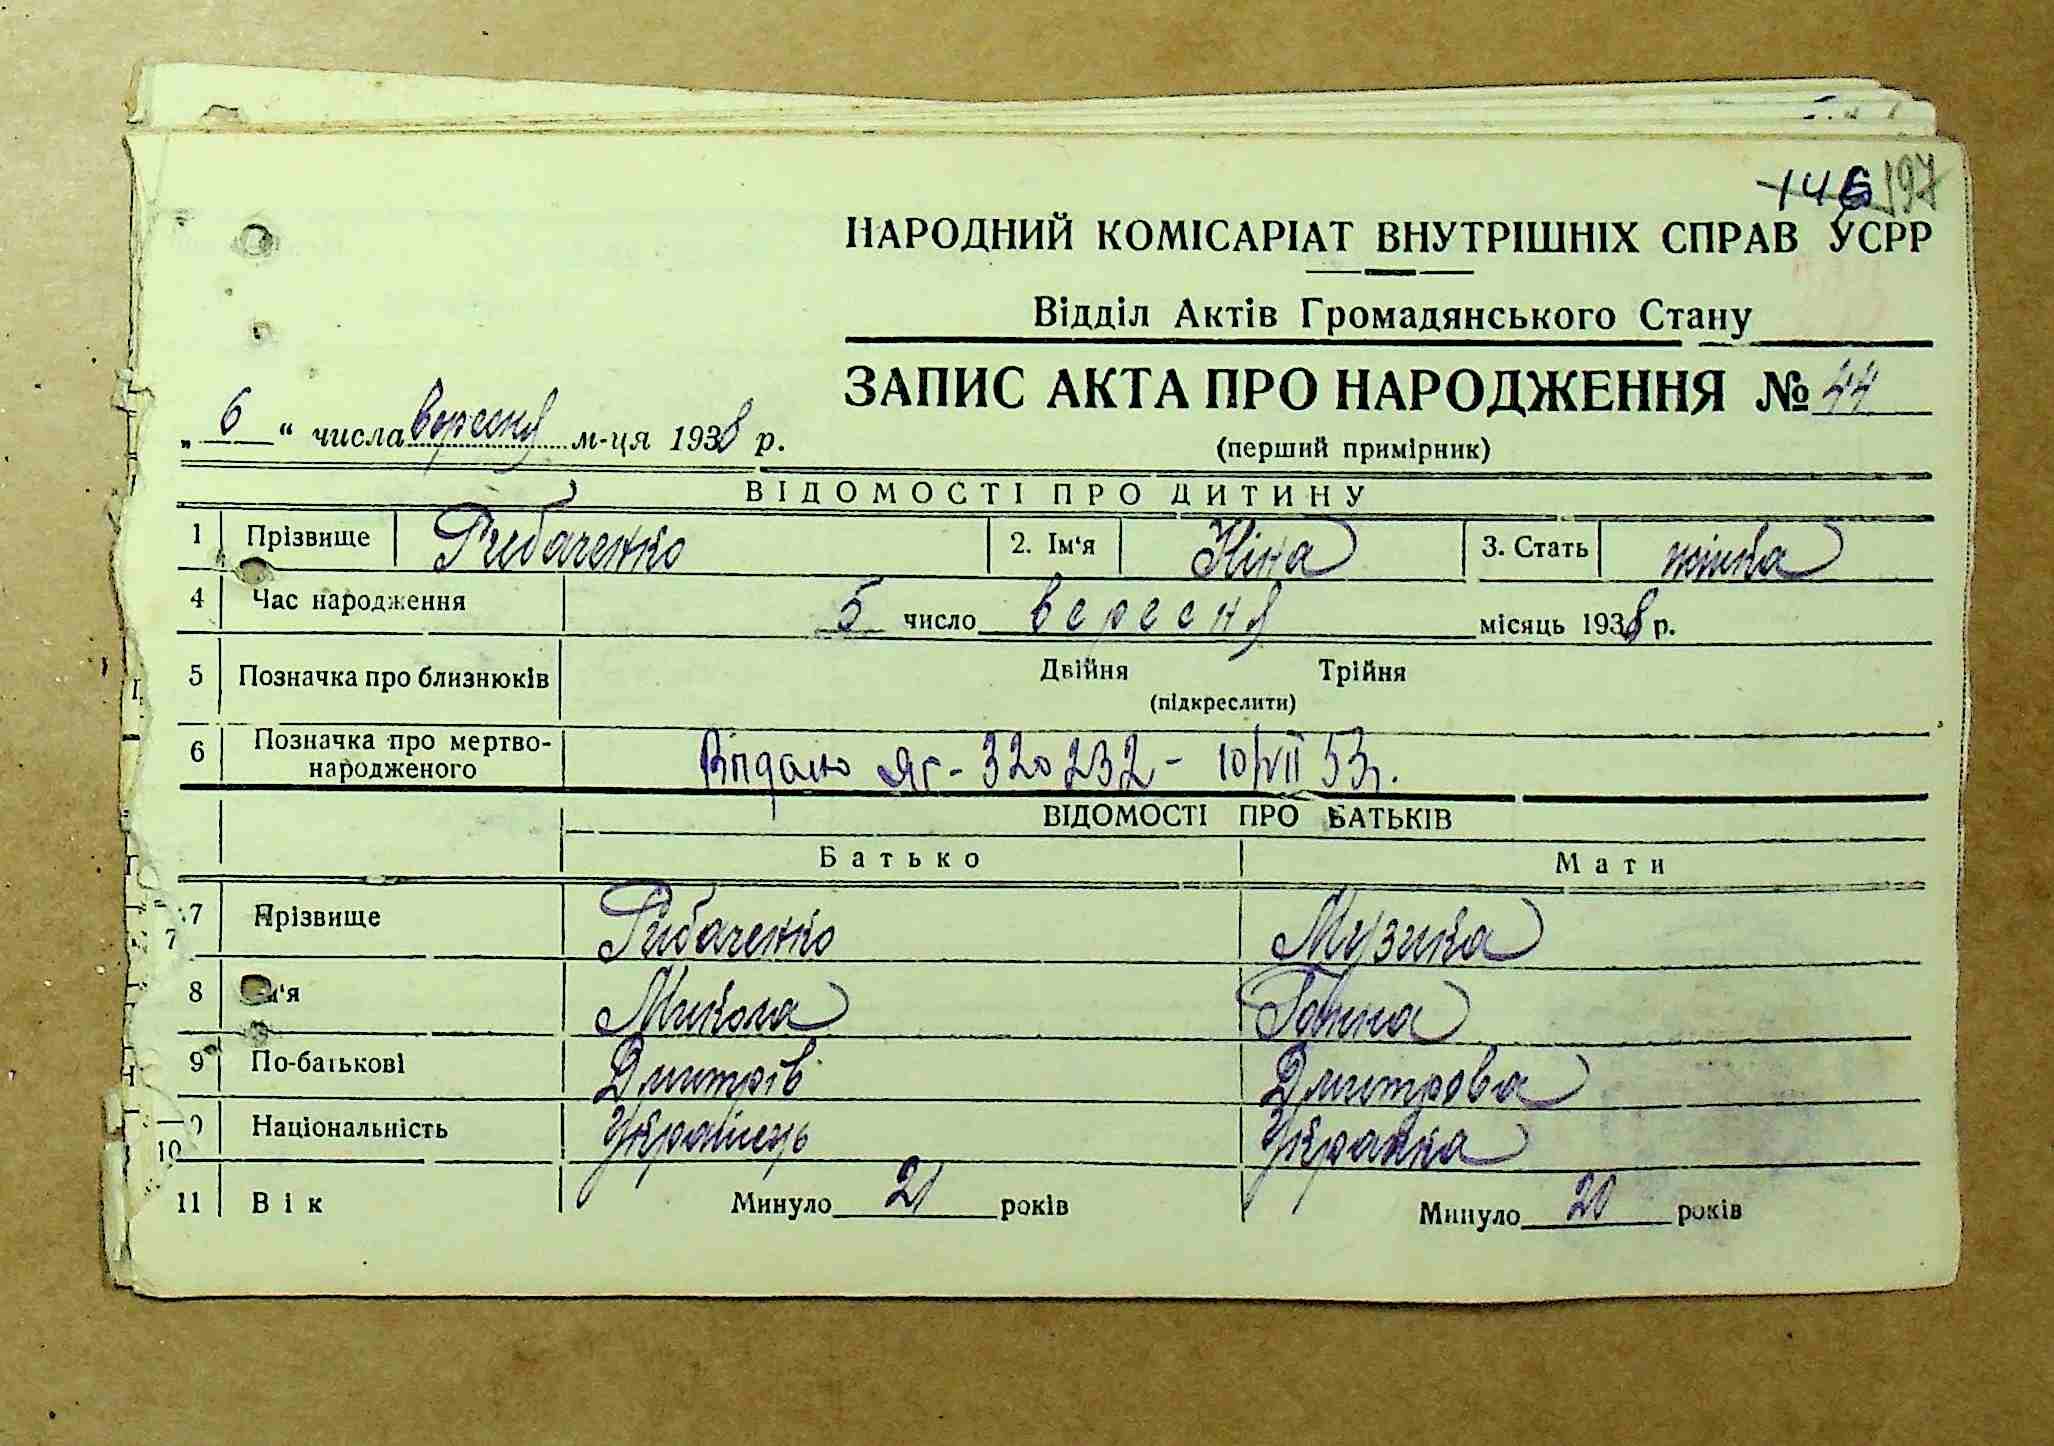 146 197
НАРОДНИЙ КОМІСАРІАТ ВНУТРІШНІХ СПРАВ УСРР
Відділ Актів Громадянського Стану
ЗАПИС АКТА ПРО НАРОДЖЕННЯ № 44
„ 6 “ числа вересня м-ця 1938 р.
(перший примірник)
ВІДОМОСТІ ПРО ДИТИНУ
1 Прізвище Рибаченко 2. Ім'я Ніна 3. Стать жінка
4 Час народження 5 число вересня місяць 1938 р.
5 Позначка про близнюків Двійня Трійня
(підкреслити)
6 Позначка про мертво-
народженого
320232 - 10/VII 53р.
ВІДОМОСТІ ПРО БАТЬКІВ
Батько Мати
7 Прізвище Рибаченко Музика
8 м'я Микола
9 По-батькові Дмитрів Дмитрова
10 Національність Українець Українка
11 Вік Минуло 21 років Минуло 20 років